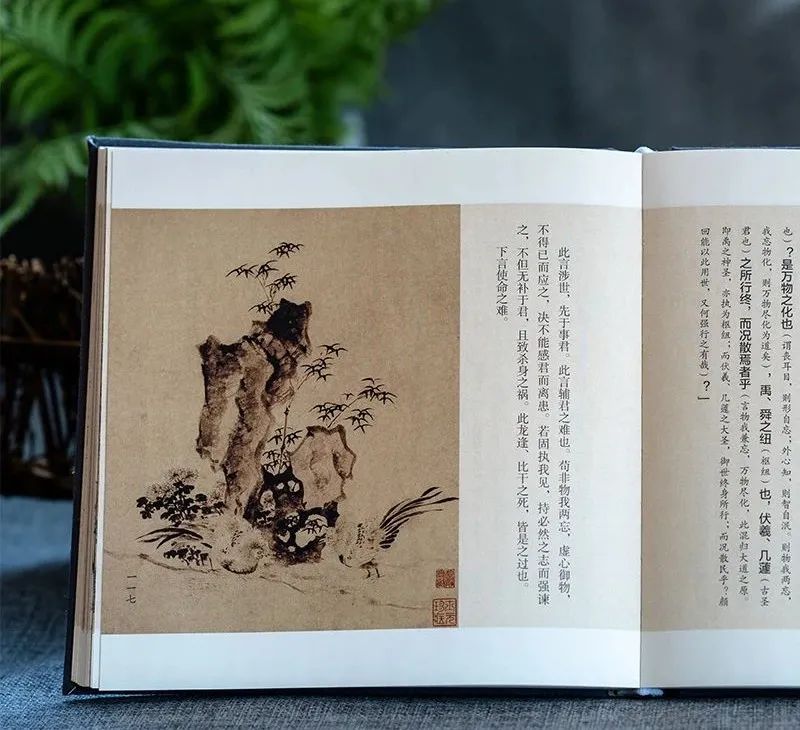 也）？是万物之化也（谓丧耳目，则形自忘，外心知，则智自泯。则物我两忘，
我忘物化，则万物尽化为道矣），禹、舜之纽（枢纽）也，伏羲、几蘧（古圣
君也）之所行终，而况散焉者乎（言物我兼忘，万物尽化，此混归大道之原。
即禹之神圣，亦执为枢纽；而伏羲、几蘧之大圣，御世终身所行，而况散民乎？颜
回能以此用世，又何强行之有哉）？」
此言涉世，先于事君。此言辅君之难也。苟非物我两忘，虚心御物，
不得已而应之，决不能感君而离患。若固执我见，持必然之志而强谏
之，不但无补于君，且致杀身之祸。此龙逢、比干之死，皆是之过也。
下言使命之难。
一一七